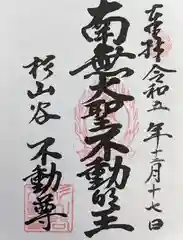 奉拝 令和五年十二月十七日
南無大聖不動明王
杉山谷不動尊